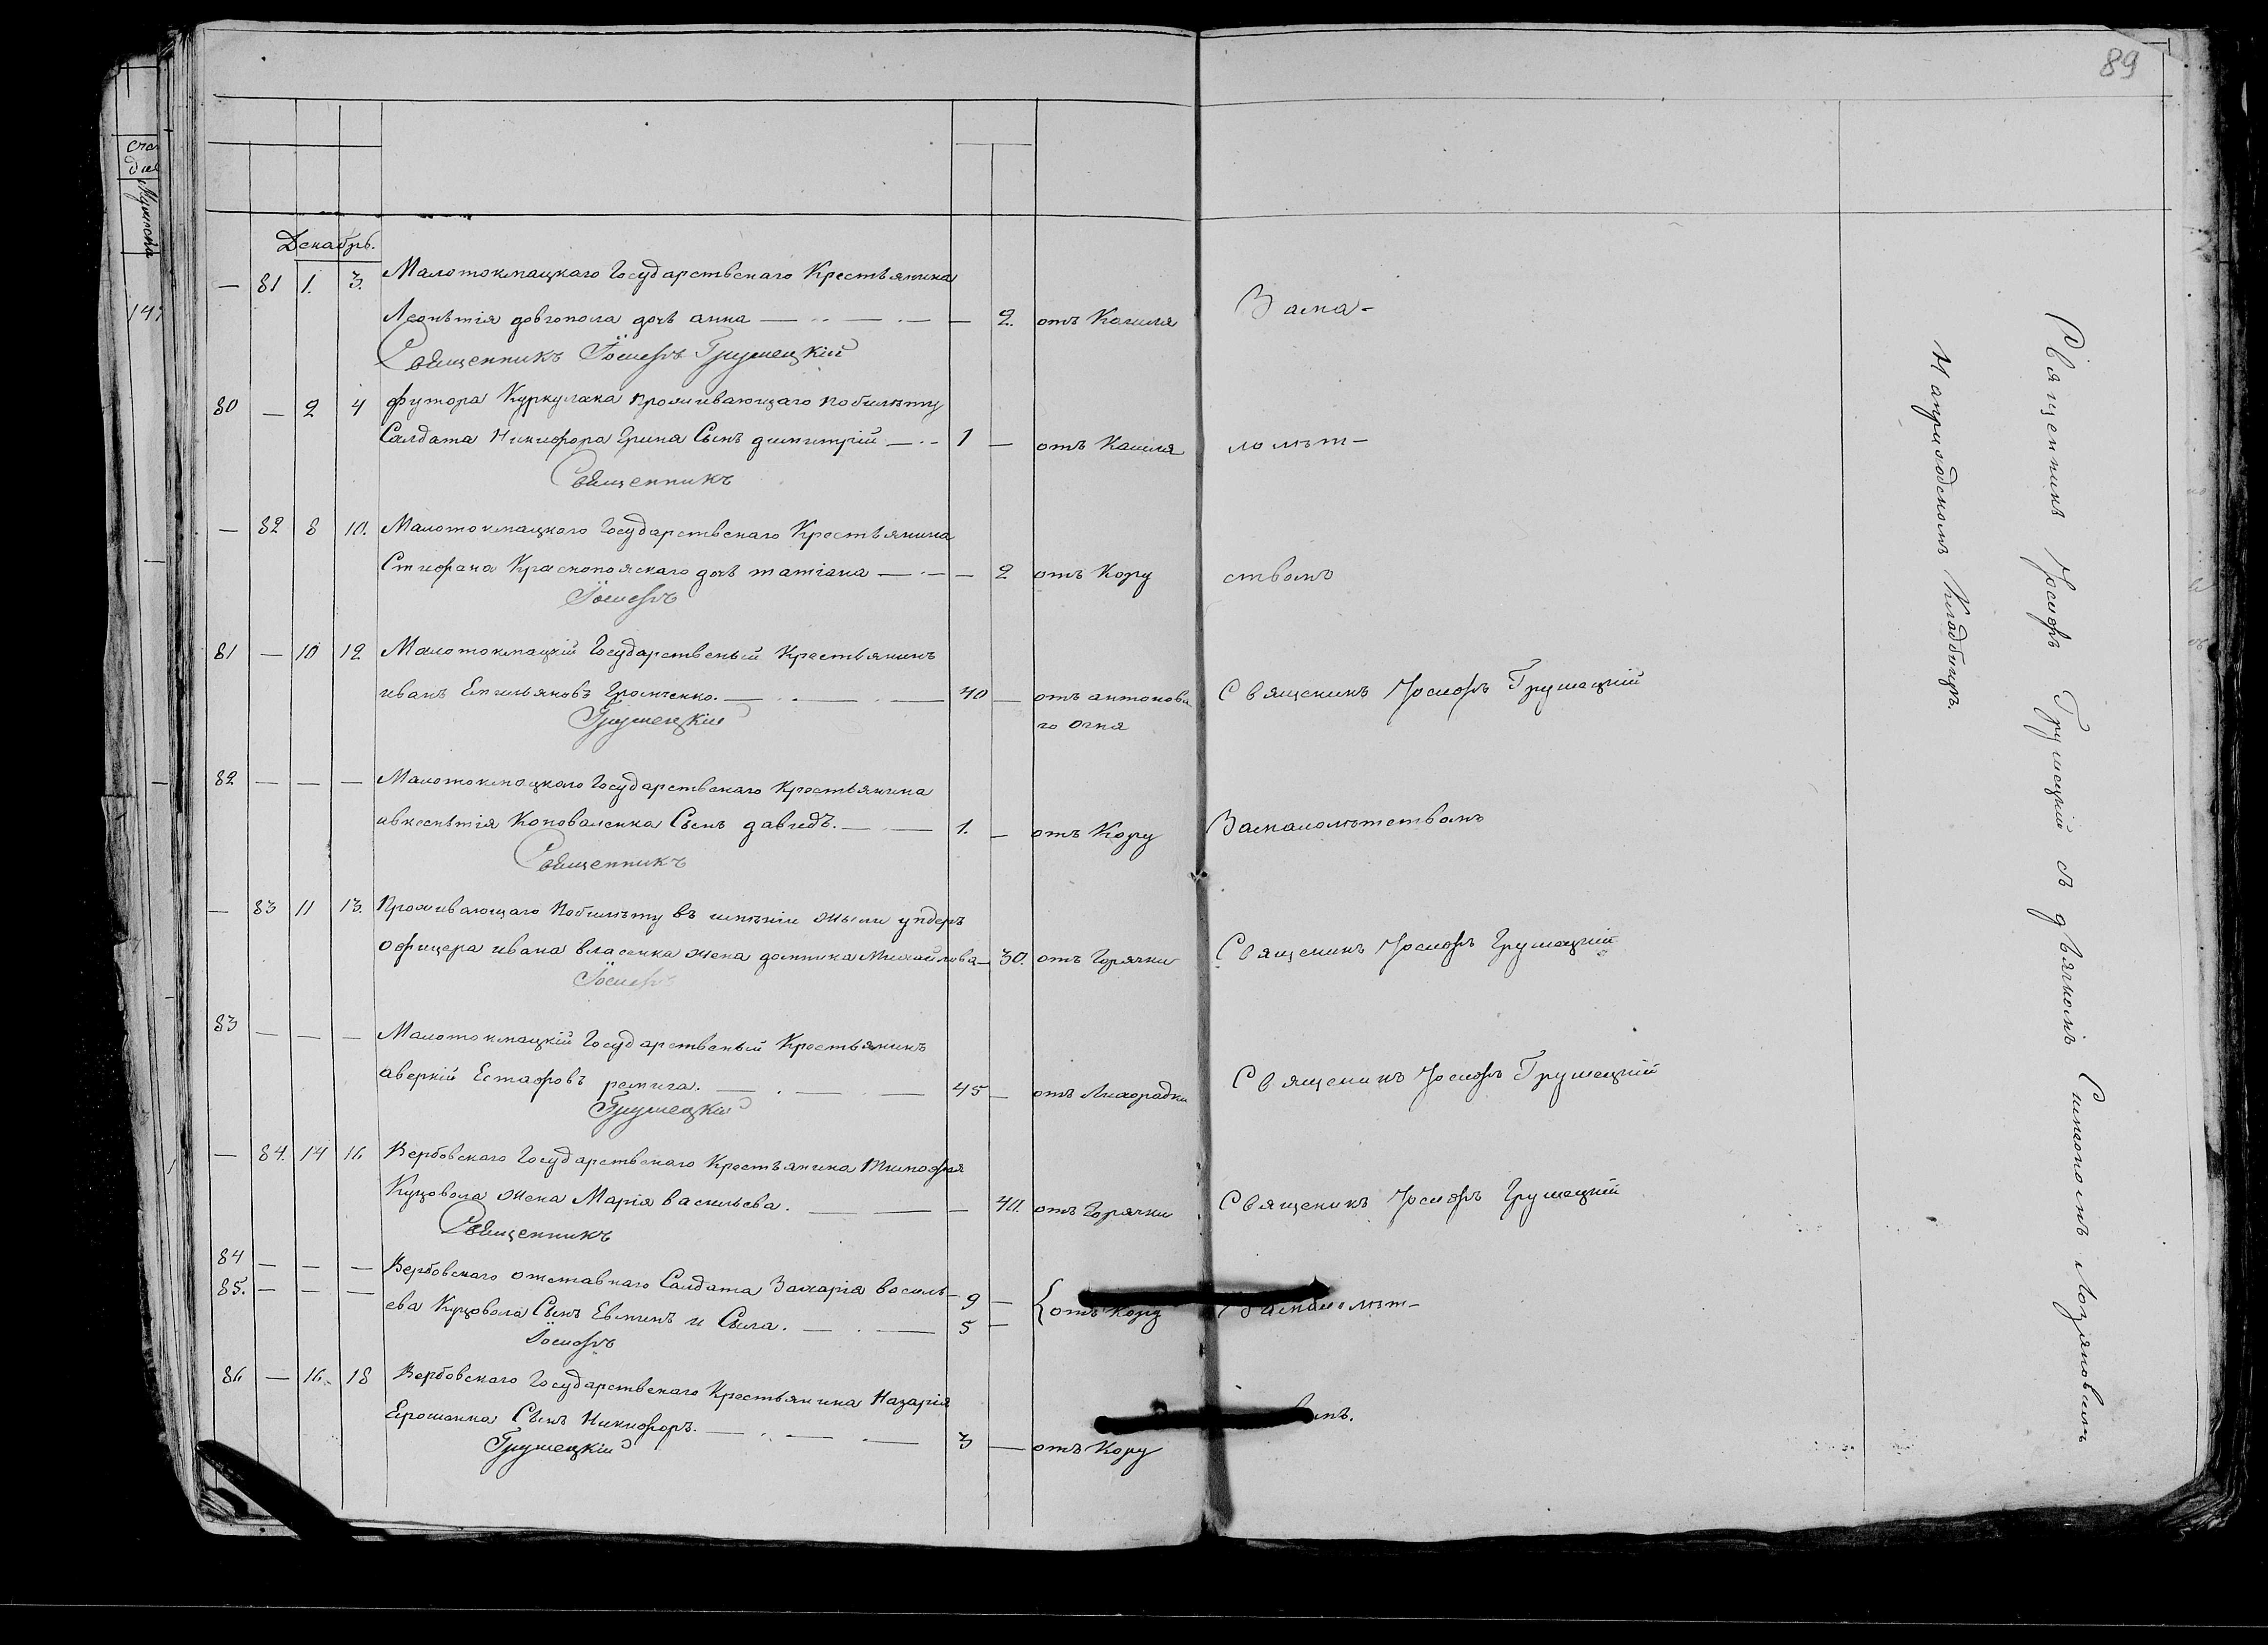 89
Декабрь.
— 81 1. 3. Малотокмацкаго Государственаго Крестьянина
Леонътія довгопола дочь анна — — 2. отъ Кашля За ма-
Священникъ Іосифъ Грушецкій
80 — 2 4 футора Куркулака проживающаго побилѣту
Салдата Никифора Грина Сынъ димитрій — 1 — отъ Кашля ло лѣт-
Священникъ
— 82 8 10. Малотокмацкого Государственаго Крестьянина
Стифана Краснопояскаго дочь татіана — — 2 отъ Кору ствомъ
Іосифъ
81 — 10 12 Малотокмацкій Государственый Крестьянинъ
иванъ Емильяновъ Громченко. — 40 — отъ антонова Священикъ Іосифъ Грушецкій
го огня
Грушецкій
82 — — — Малотокмацкого Государственаго Крестьянина
авксенътія Коноваленка Сынъ давидъ. — 1. — отъ Кору За малолѣтствомъ
Священникъ
— 83 11 13. Проживающаго побилѣту въ имѣніи ундеръ
офицера ивана власенка жена домника Михайлова — 30. отъ Горячки Священикъ Іосифъ Грушецкій
Іосифъ
83 — — — Малотокмацкій Государственый Крестьянинъ
аверкій Естафовъ ремига. — 45 — отъ Лихорадки Священикъ Іосифъ Грушецкій
Грушецкій
— 84. 14 16 Вербовского Государственаго Крестьянина Тимофея
Куцовола жена Марія васильева. — — 40. отъ Горячки Священикъ Іосифъ Грушецкій
Священникъ
84 — — — Вербовского отставнаго Салдата Захарія василь- 9 —
85. — — — ева Куцовола Сынъ Евтихъ и Сила. — 5 — отъ Кору За малолѣт-
Іосифъ
86 — 16. 18 Вербовского Государственаго Крестьянина Назарія
Ерошенка Сынъ Никифоръ. — 3 — отъ Кору
Грушецкій
На приходскомъ Кладбищѣ.
Священникъ Іосифъ Грушецкій съ дьячкомъ Симеономъ Лозяновымъ